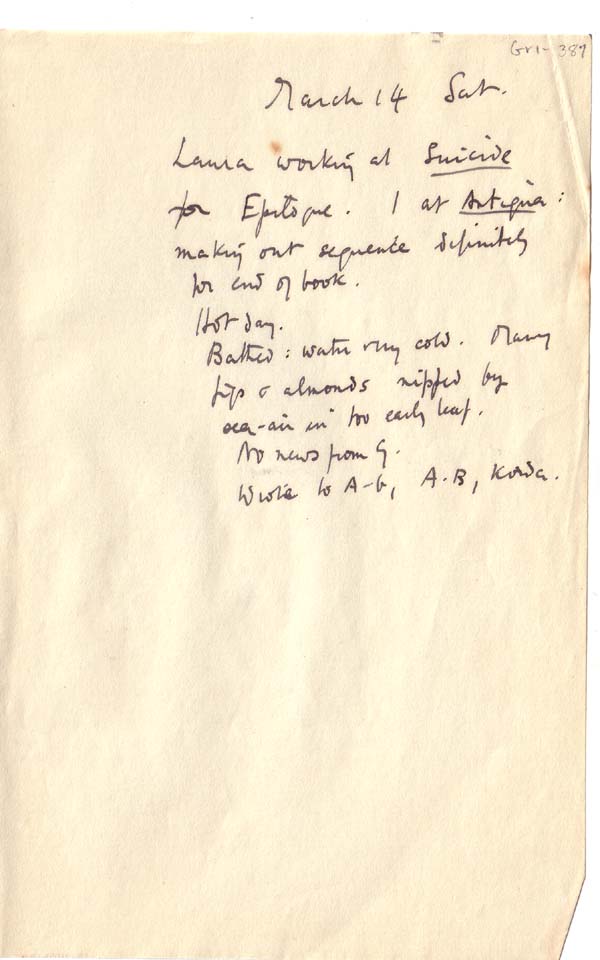 Gr1-387
March 14 Sat.
Laura working at Suicide
for Epilogue. I at Antigua:
making out sequence definitely
for end of book.
Hot day.
Bathed: water very cold. Many
figs & almonds nipped by
sea-air in too early leaf.
No news from G.
Wrote to A-G, A.B, Korda.